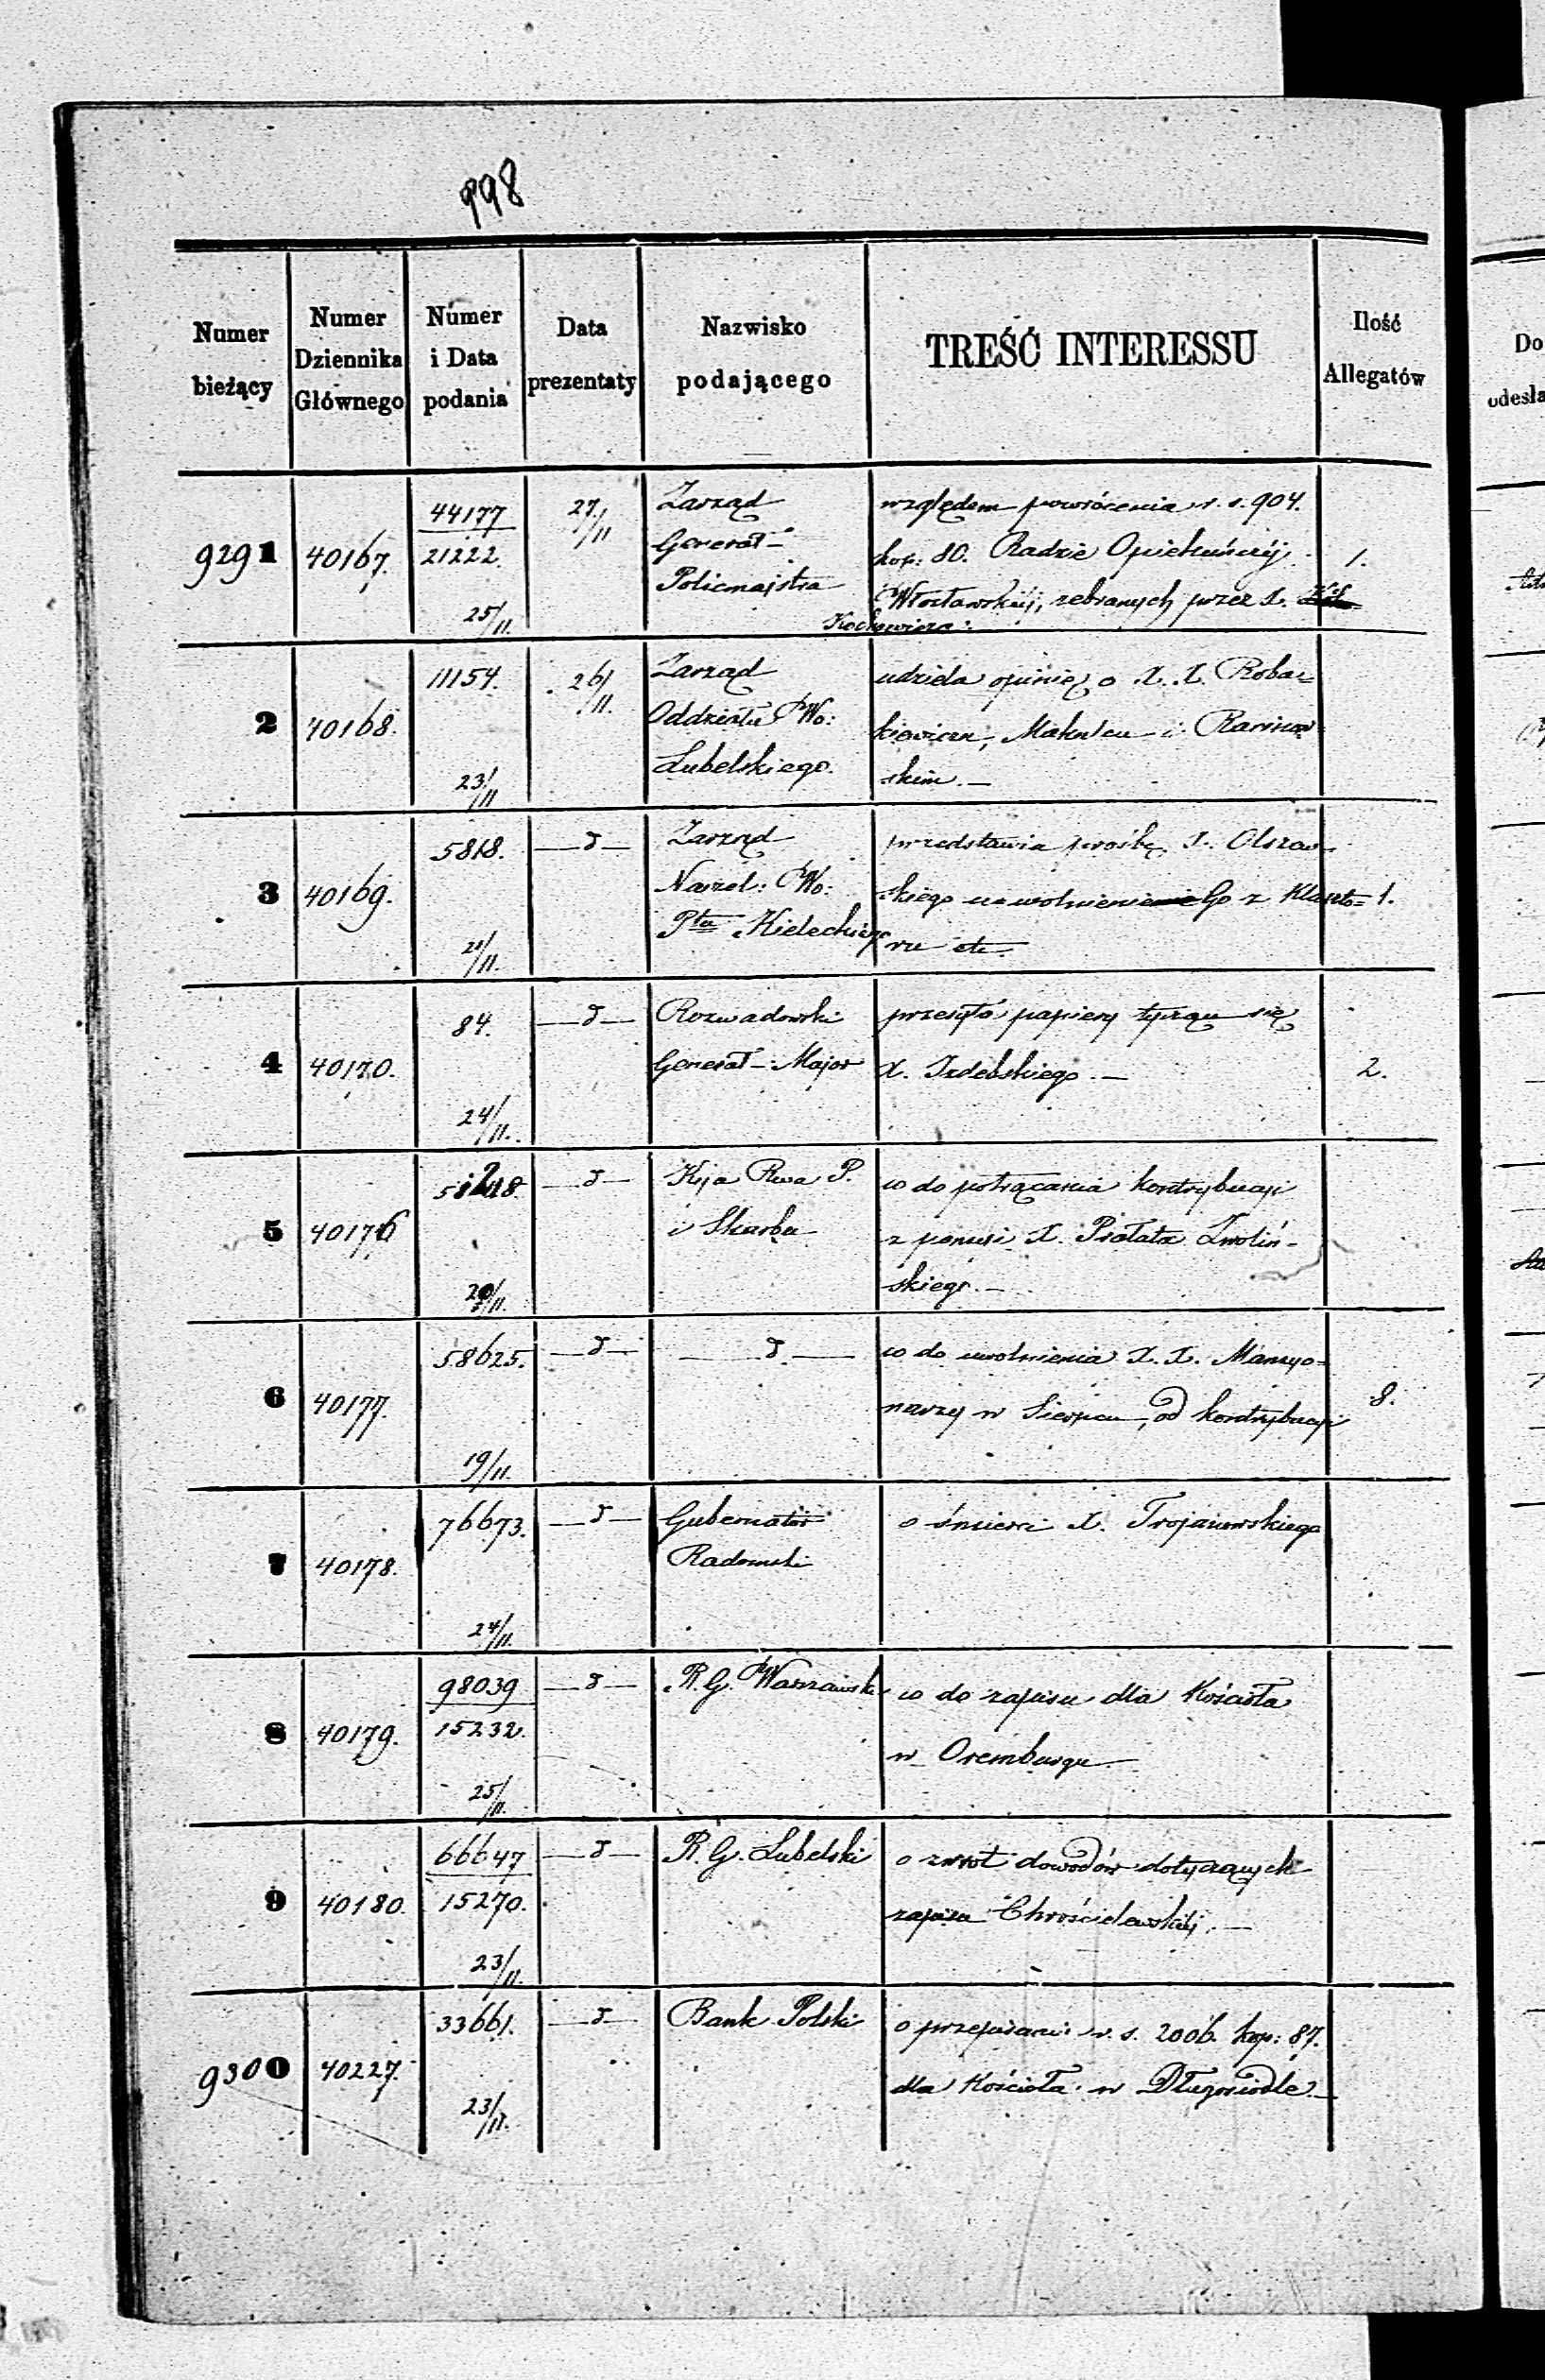 998
Numer bieżący
Numer Dziennika Głównego
Numer i Data podania
Data prezentaty
Nazwisko podającego
TREŚĆ INTERESSU
Ilość Allegatów
9291
40167.
44177
21222.
25/11.
27/11
Zarząd
Generał-
Policmajstra
względem powrócenia r. s. 904.
kop: 80. Radzie Opiekuńczéj
Włocławskiéj, zebranych przez X.
1.
2
40168.
11154.
23/11
26/11.
Zarząd
Oddziału Wo:
Lubelskiego.
udziela opinię o X. X. Roba=
kiewiczu, i
skim. —
3
40169.
5818.
21/11.
—d—
Zarząd
Naczel: Wo:
Ptu Kieleckiego
przedstawia prośbę X. Olszew-
skiego Go z Klaszto=
ru etc.
1.
4
40170.
84.
24/11.
—d—
Rozwadowski
Generał-Major
przesyła papiery tyczące się
X. Izdebskiego. —
2.
5
40176
20/11.
—d—
Kja Rwa P.
i Skarbu
co do potrącania kontrybucyi
z pensii X. Prałata Zwoliń-
skiego. —
6
40177.
58625.
19/11.
—d—
—d—
co do uwolnienia X. X. Mansyo=
narzy w Sierpcu, od kontrybucyi
8.
7
40178.
76673.
24/11.
—d—
Gubernator
Radomski
o śmierci X. Trojanowskiego
8
40179.
98039
15232.
25/11.
—d—
R. G. Warszawski
co do zapisu dla Kościoła
w Oremburgu
9
40180.
66647
15270.
23/11.
—d—
R. G. Lubelski
o zwrot dowodów dotyczących
zapisu Chrościelewskiéj. —
9300
40227.
33661.
23/11.
—d—
Bank Polski
o przepisanie r. s. 2006. kop: 87.
dla Kościoła w Długosiodle. —
Do
odesła